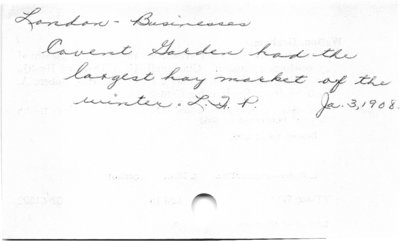 London - Businesses
Covent Garden had the
largest hay market of the
winter. L.F.P. Ja. 3, 1908.